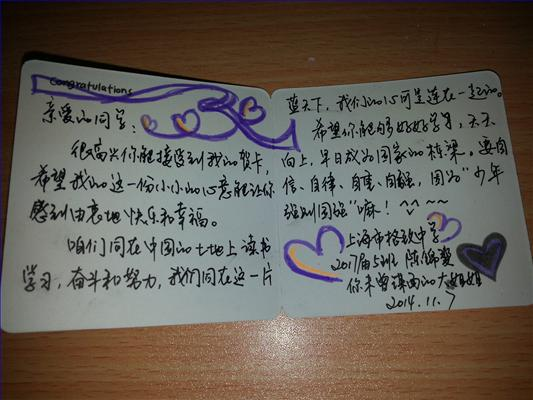 Congratulations
亲爱的同学：
很高兴你能接受到我的贺卡，
希望我的这一份小小的心意能让你
感到由衷地快乐和幸福。
咱们同在中国的土地上读书
学习，奋斗和努力，我们同在这一片
蓝天下，我们的心可是连在一起的。
希望你能够好好学习，天天
向上，早日成为国家的栋梁。要自
信、自律、自重、自强，因为“少年
强则国强”嘛！^^~~
上海市格致中学
2017届5班
你未曾谋面的大姐姐
2014.11.7